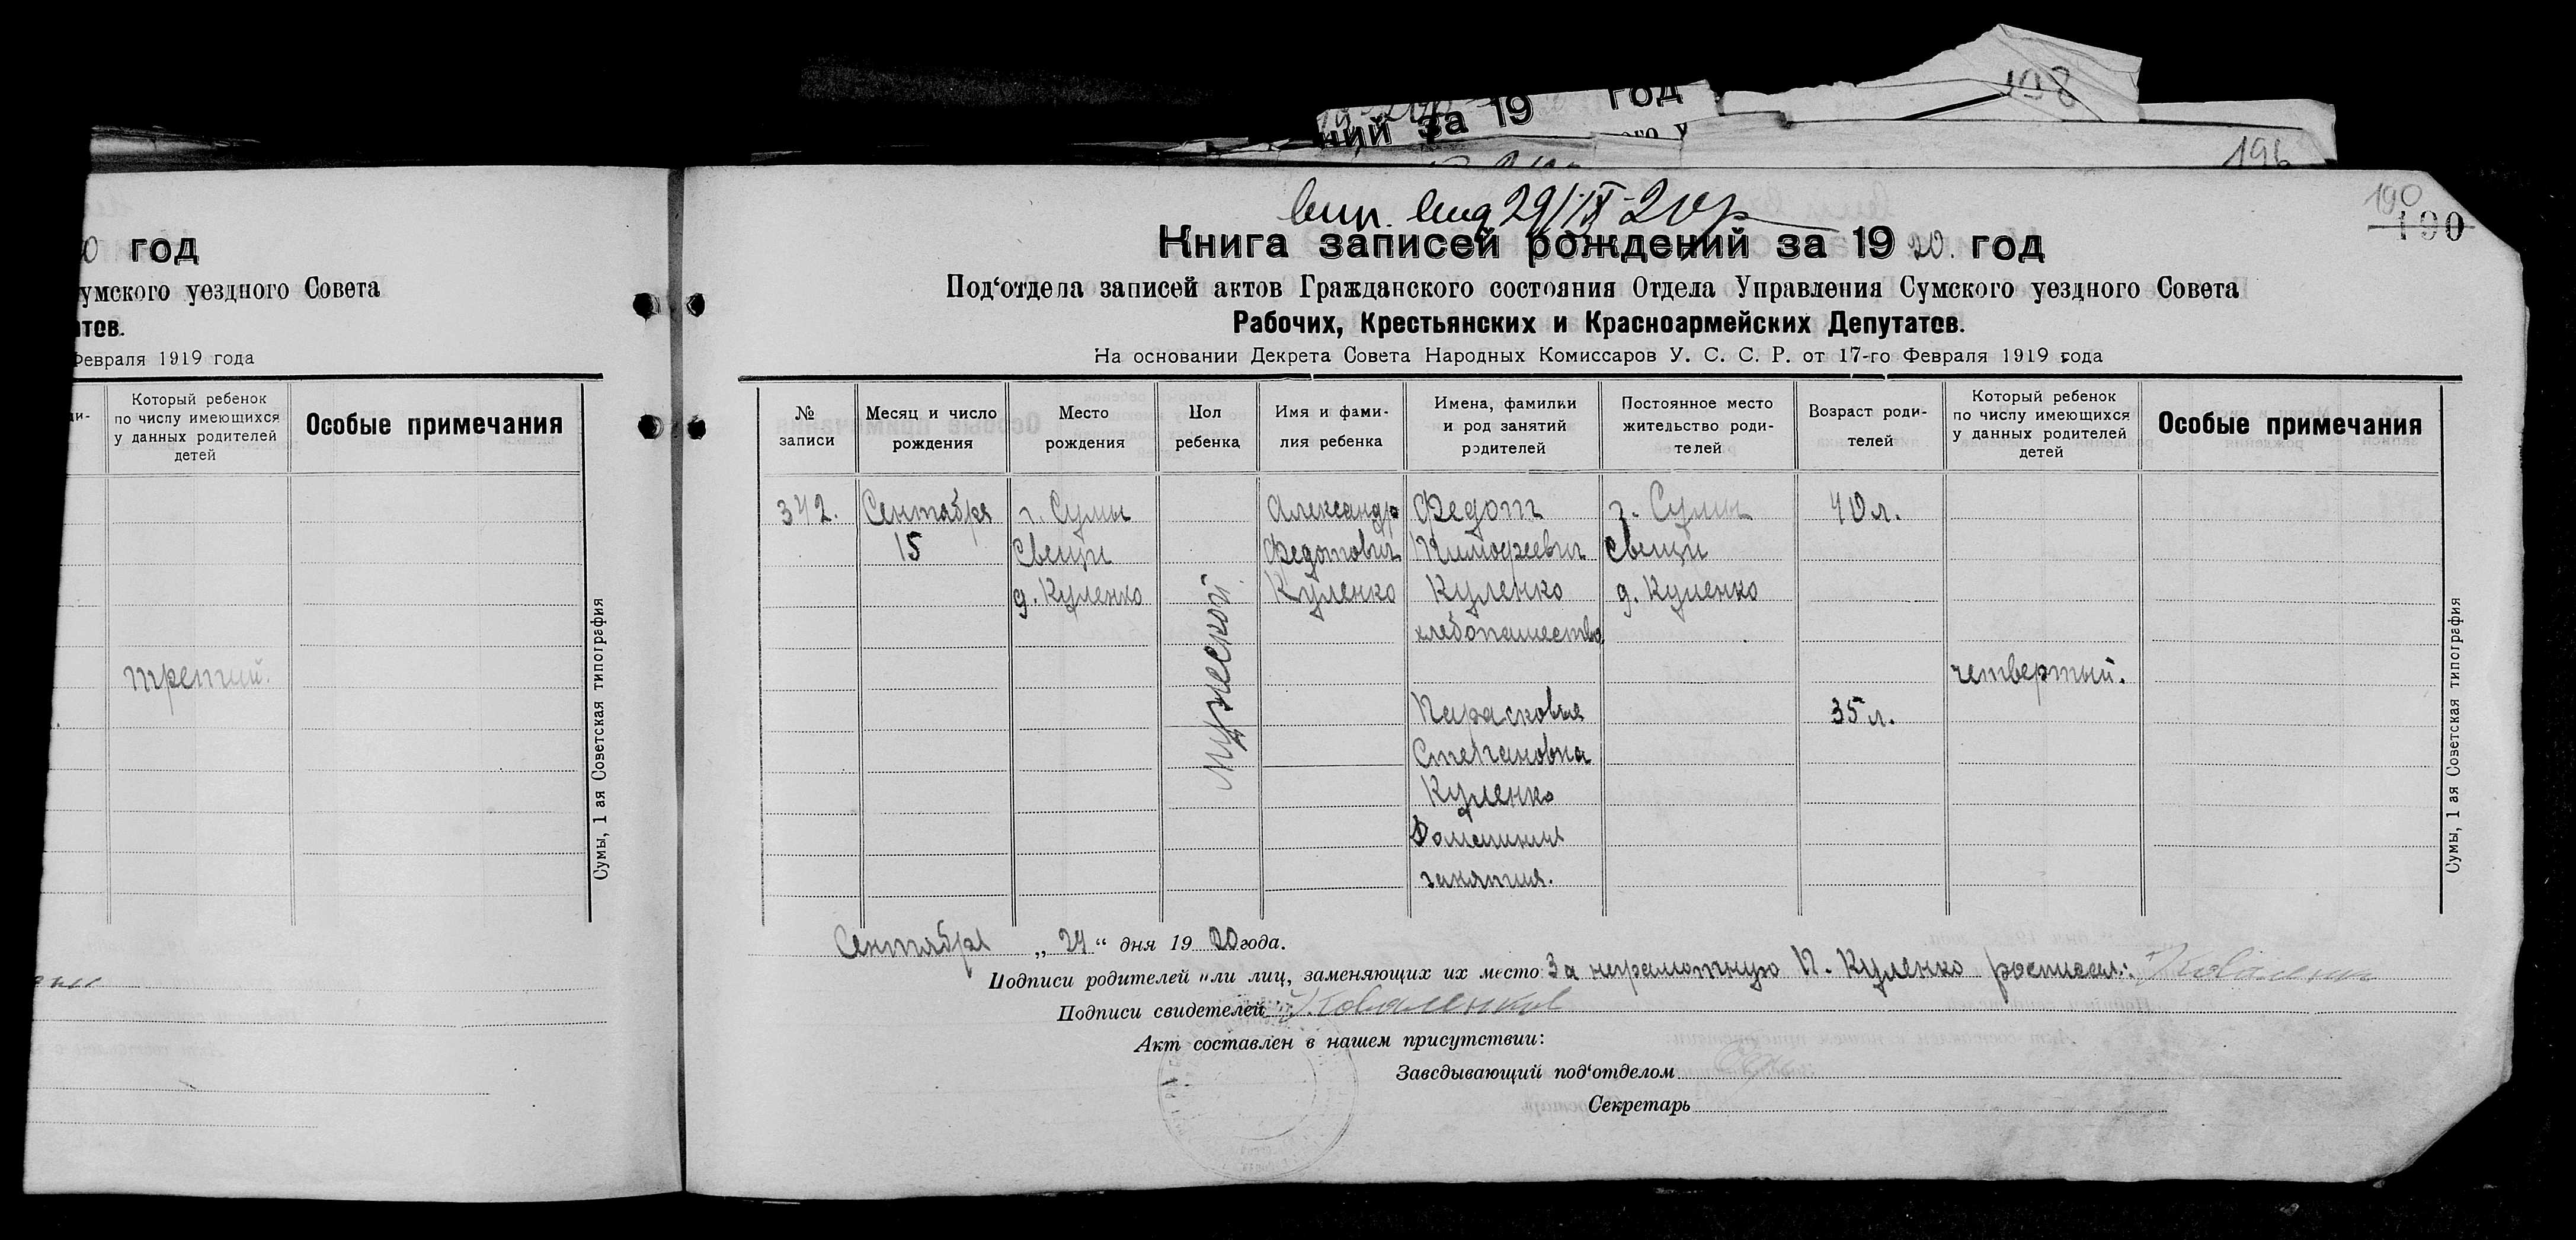 198
ний за 19 год
196
190
190
вып. выд 29/IX-20 р
0 год
умского уездного Совета
тов.
Февраля 1919 года
Который ребенок
по числу имеющихся
у данных родителей
детей
Особые примечания
третий.
Сумы, 1 ая Советская типография
Книга записей рождений за 1920. год
Под‘отдела записей актов Гражданского состояния Отдела Управления Сумского уездного Совета
Рабочих, Крестьянских и Красноармейских Депутатов.
На основании Декрета Совета Народных Комиссаров У. С. С. Р. от 17-го Февраля 1919 года
№ записи
Месяц и число рождения
Место рождения
Пол ребенка
Имя и фами-
лия ребенка
Имена, фамилии
и род занятий
родителей
Постоянное место
жительство роди-
телей
Возраст роди-
телей
Который ребенок
по числу имеющихся
у данных родителей
детей
Особые примечания
342. Сентября г. Сумы Александр Федот г. Сумы 40 л.
15 Федотович Тимофеевич
д. Куленко Куленко Куленко д. Куленко
хлебопашество
мужеской
четвертый.
Парасковья 35 л.
Степановна
Куленко
Домашния
занятия.
Сумы, 1 ая Советская типография
Сентября „24“ дня 1920 года.
Подписи родителей или лиц, заменяющих их место: За неграмотную П. Куленко росписал:
Подписи свидетелей
Акт составлен в нашем присутствии:
Заведывающий под‘отделом
Секретарь